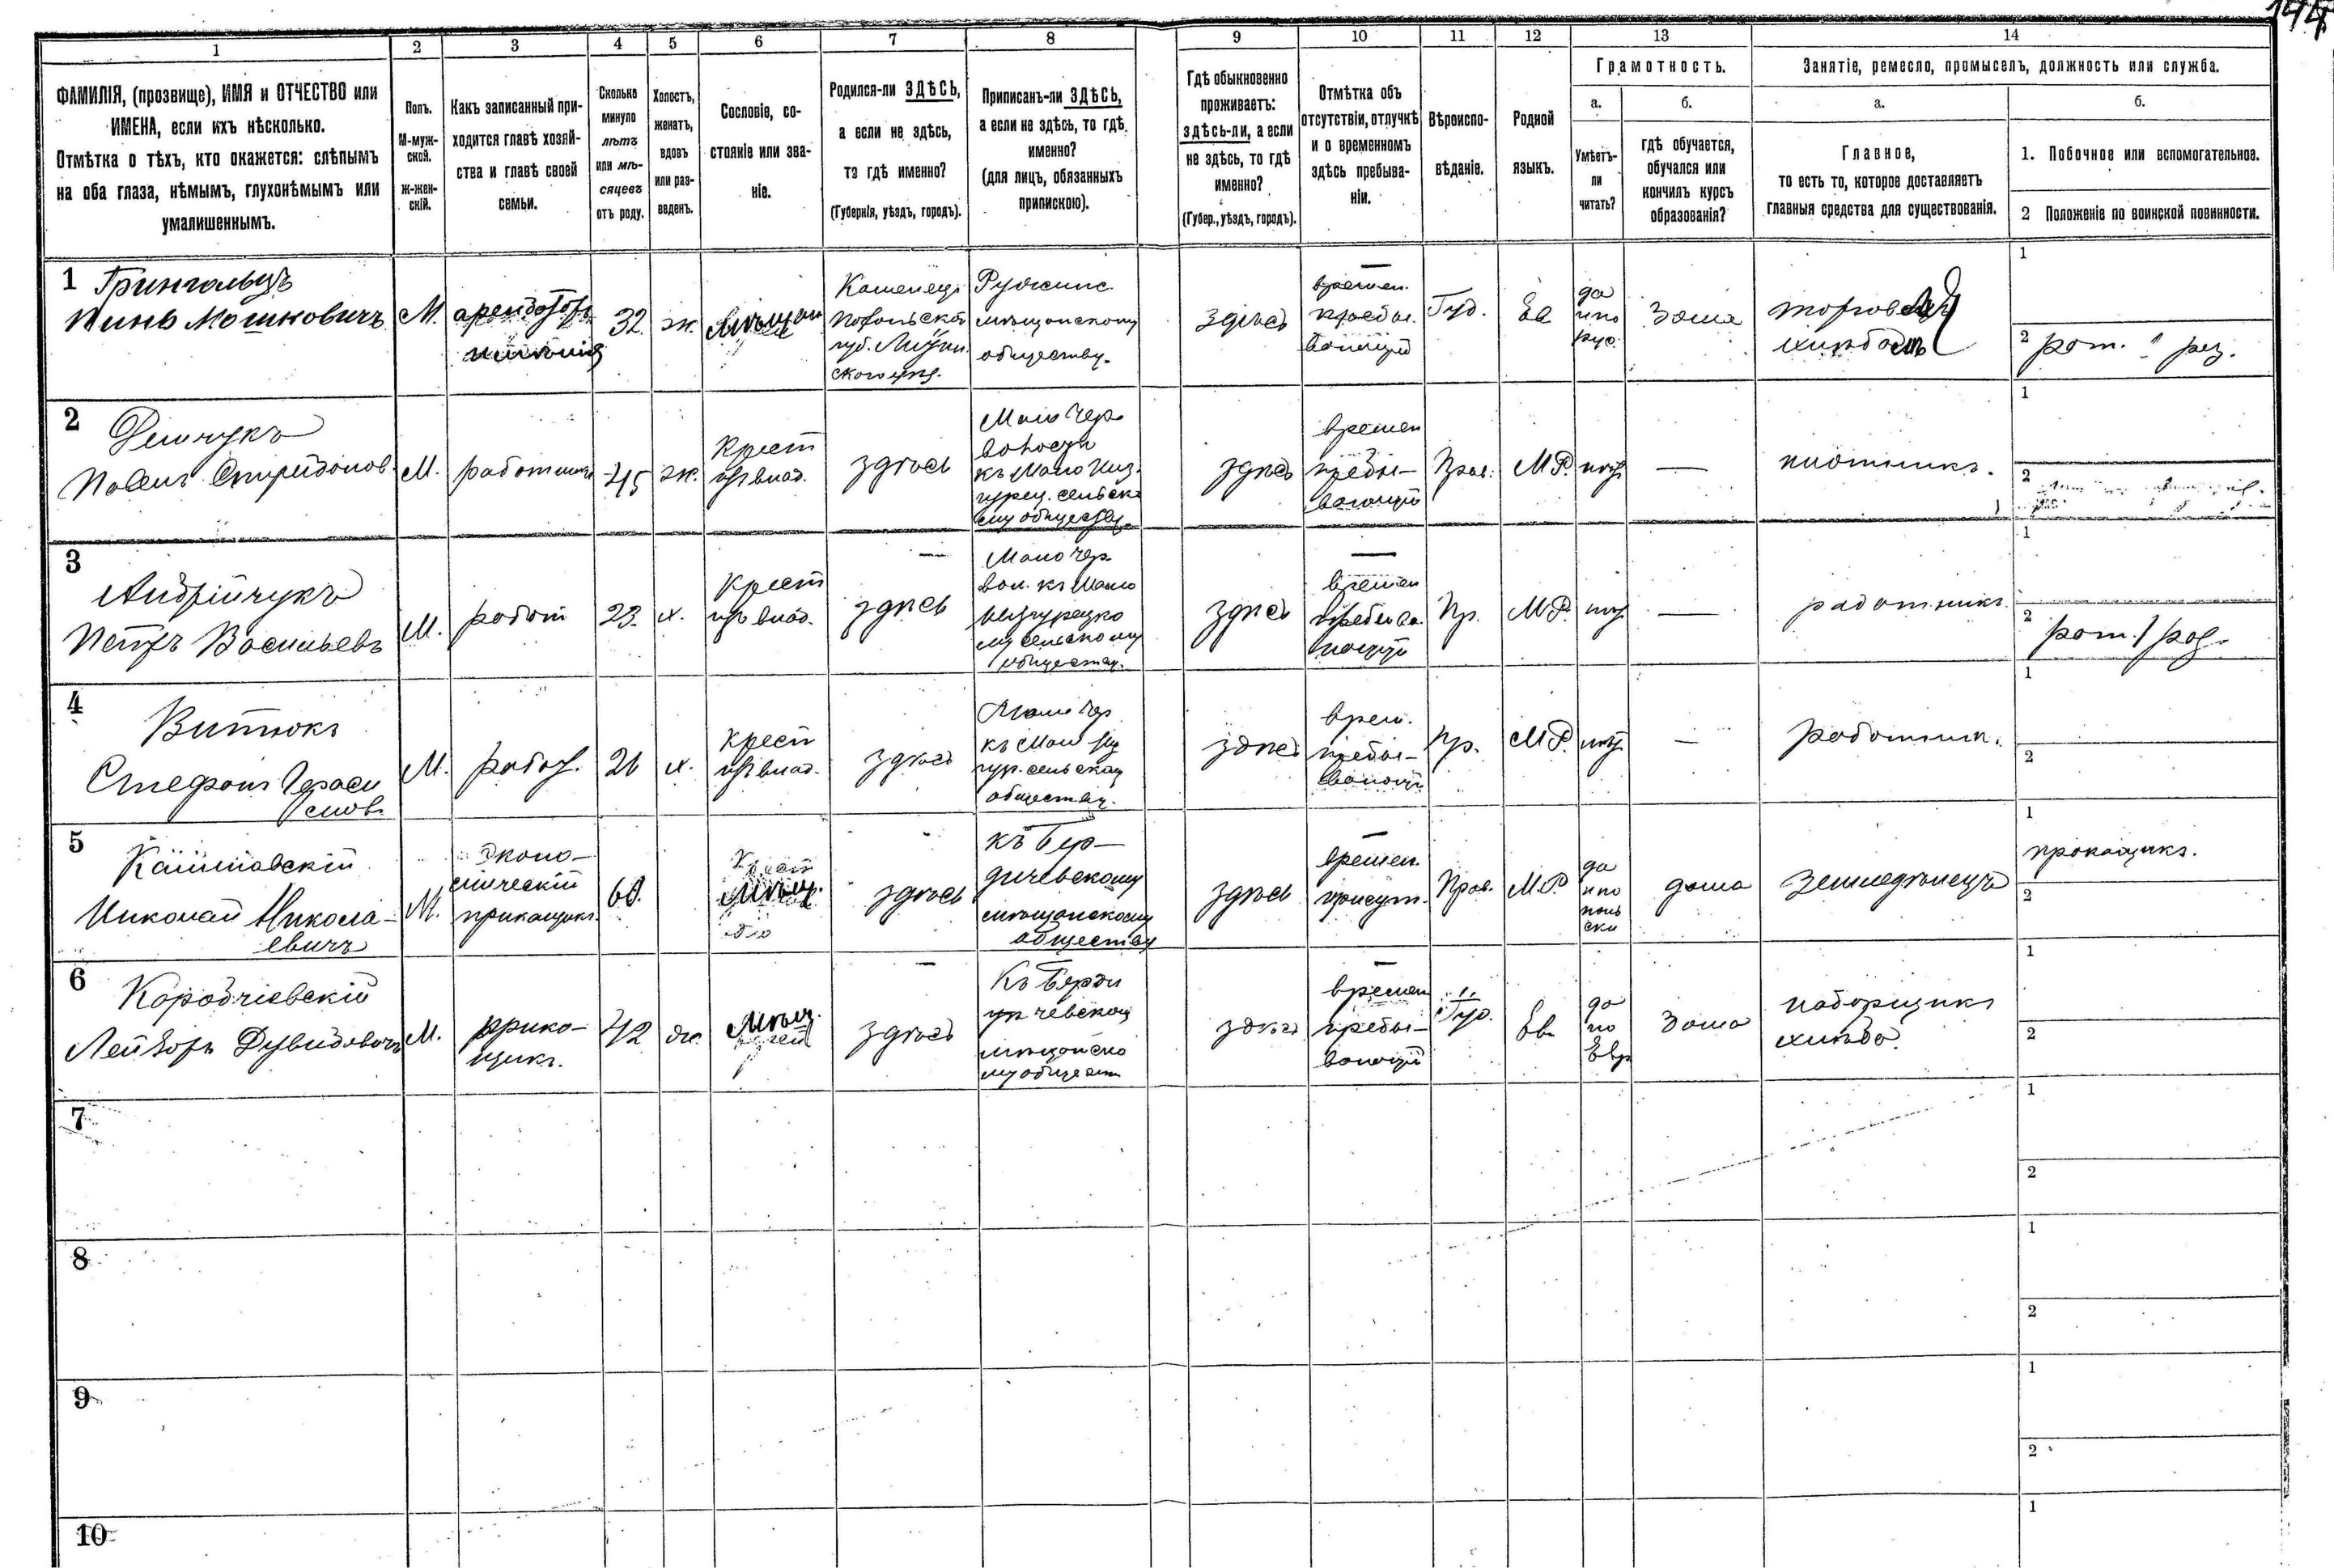 144
1
2
3
4
5
6
7
8
9
10
11
12
13
14
ФАМИЛІЯ, (прозвище), ИМЯ и ОТЧЕСТВО или
ИМЕНА, если ихъ нѣсколько.
Отмѣтка о тѣхъ, кто окажется: слѣпымъ
на оба глаза, нѣмымъ, глухонѣмымъ или
умалишеннымъ.
Полъ.
М-муж-
ской.
ж-жен-
скій.
Какъ записанный при-
ходится главѣ хозяй-
ства и главѣ своей
семьи.
Сколько
минуло
лѣтъ
или мѣ-
сяцевъ
отъ роду.
Холостъ,
женатъ,
вдовъ
или раз-
веденъ.
Сословіе, со-
стояніе или зва-
ніе.
Родился-ли ЗДѢСЬ,
а если не здѣсь,
то гдѣ именно?
(Губернія, уѣздъ, городъ).
Приписанъ-ли ЗДѢСЬ,
а если не здѣсь, то гдѣ
именно?
(для лицъ, обязанныхъ
припискою).
Гдѣ обыкновенно
проживаетъ:
здѣсь-ли, а если
не здѣсь, то гдѣ
именно?
(Губер., уѣздъ, городъ).
Отмѣтка объ
отсутствіи, отлучкѣ
и о временномъ
здѣсь пребыва-
ніи.
Вѣроиспо-
вѣданіе.
Родной
языкъ.
Грамотность.
а.
Умѣетъ-
ли
читать?
б.
гдѣ обучается,
обучался или
кончилъ курсъ
образованія?
Занятіе, ремесло, промыселъ, должность или служба.
а.
Главное,
то есть то, которое доставляетъ
главныя средства для существованія.
б.
1. Побочное или вспомогательное.
2 Положеніе по воинской повинности.
1 Грингольцъ
Пинь Мошковичъ
М.
арендаторъ
32
ж.
Мѣщан
Каменец
Подольской
губ.
ского уѣз.
Ружинс.
мѣщанскому
обществу.
здѣсь
времен.
пребы
вающій
Іуд.
Ев
да
и по
рус.
дома
торговецъ
хлѣбомъ
1
2 рат. 1 раз.
2 Демчукъ
Павелъ Спиридонов.
М.
работникъ
45
ж.
Крест
изъ влад.
здѣсь
Мало Чер
волости
къ Мало Низ
гурец. сельск
му обществу.
здѣсь
времен
пребы-
вающій
Прав.
М Р.
нѣт
—
плотникъ.
1
2
3 Андрійчукъ
Петръ Васильевъ
М.
работ
23.
х.
Крест
изъ влад.
здѣсь
Мало Чер.
вол. къ Мало
Низгурецко
му сельскому
обществу.
здѣсь
времен
пребыва
ющій
Пр.
М Р.
нѣт
—
работникъ.
1
2 рат. 1 раз.
4 Витюкъ
Стефанъ Гераси
мовъ
М.
работ.
21
х.
крест
изъ влад.
здѣсь
Мало Чер
къ Мало Низ
гур. сельскому
обществу.
здѣсь
врем.
пребы-
вающій
Пр.
М Р.
нѣт
—
работник.
1
2
5
Николай Никола-
евичъ
М.
Эконо-
мическій
прикащикъ
60.
Мѣщ.
здѣсь
къ Бер-
дичевскому
мѣщанскому
обществу
здѣсь
времен
присут.
Прав.
М. Р
да
и по
поль
ски
дома
земледѣлецъ
1
прикащикъ.
2
6 Коробчіевскій
Лейзоръ Дувидовичъ
М.
прика-
щикъ.
42
ж.
Мѣщ.
здѣсь
Къ Берди
чевском
мѣщанско
му общест
здѣсь
времен
пребы-
вающій
Іуд.
Ев.
да
по
Евр
дома
хлѣба.
1
2
7
1
2
8
1
2
9
1
2
10
1